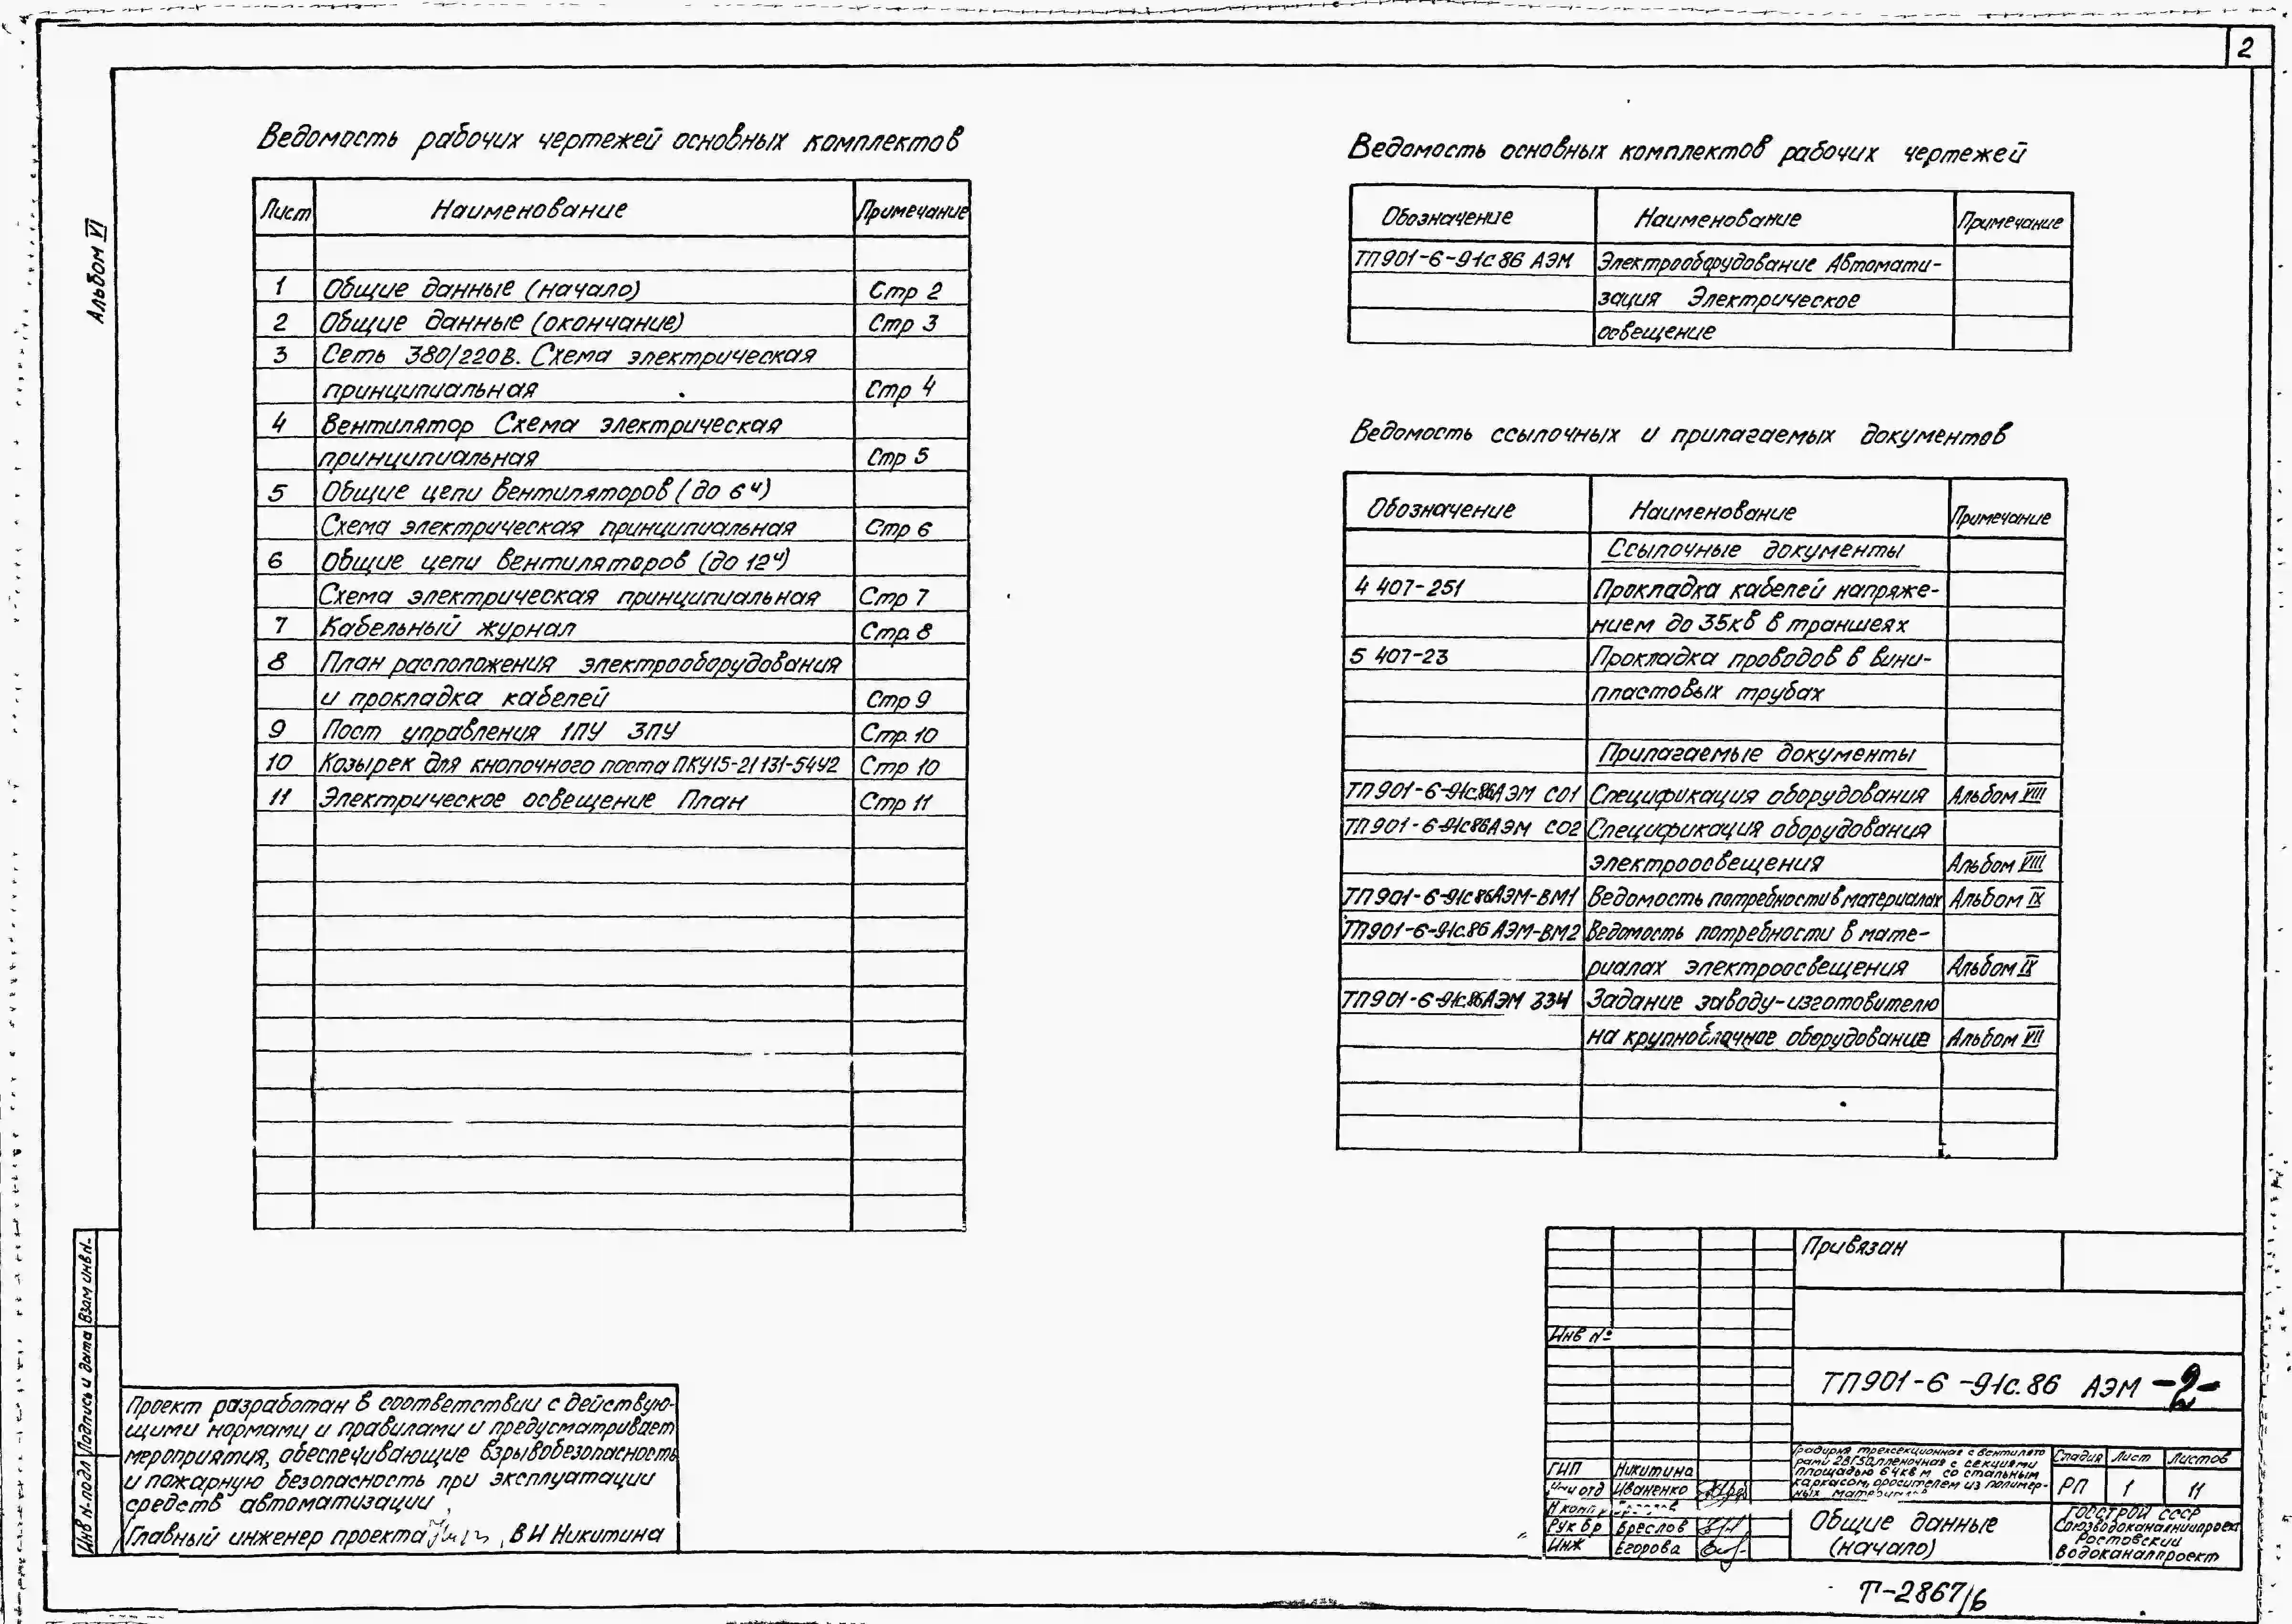 2
Альбом VI
Ведомость рабочих чертежей основных комплектов
Лист Наименование Примечание
1 Общие данные (начало) Стр 2
2 Общие данные (окончание) Стр 3
3 Сеть 380/220В. Схема электрическая
принципиальная Стр 4
4 Вентилятор Схема электрическая
принципиальная Стр 5
5 Общие цепи вентиляторов (до 6ч)
Схема электрическая принципиальная Стр 6
6 Общие цепи вентиляторов (до 12ч)
Схема электрическая принципиальная Стр 7
7 Кабельный журнал Стр. 8
8 План расположения электрооборудования
и прокладка кабелей Стр 9
9 Пост управления 1ПУ 3ПУ Стр. 10
10 Козырек для кнопочного поста ПКУ15-21 131-54У2 Стр 10
11 Электрическое освещение План Стр 11
Ведомость основных комплектов рабочих чертежей
Обозначение Наименование Примечание
ТП901-6-91с.86 АЭМ Электрооборудование Автомати-
зация Электрическое
освещение
Ведомость ссылочных и прилагаемых документов
Обозначение Наименование Примечание
Ссылочные документы
4 407-251 Прокладка кабелей напряже-
нием до 35кв в траншеях
5 407-23 Прокладка проводов в вини-
пластовых трубах
Прилагаемые документы
ТП901-6-91с.86АЭМ СО1 Спецификация оборудования Альбом VIII
ТП901-6-91с86АЭМ СО2 Спецификация оборудования
электроосвещения Альбом VIII
ТП901-6-91с86АЭМ-ВМ1 Ведомость потребности в материалах Альбом IX
ТП901-6-91с.86 АЭМ-ВМ2 Ведомость потребности в мате-
риалах электроосвещения Альбом IX
ТП901-6-91с.86АЭМ ЗЗИ Задание заводу-изготовителю
на крупноблочное оборудование Альбом VII
Проект разработан в соответствии с действую-
щими нормами и правилами и предусматривает
мероприятия, обеспечивающие взрывобезопасность
и пожарную безопасность при эксплуатации
средств автоматизации
Главный инженер проекта В И Никитина
Инв N-подл Подпись и дата Взам инв N-
Привязан
Инв №
ТП901-6-91с.86 АЭМ -2-
Градирня трехсекционная с вентилято
рами 2ВГ50, пленочная с секциями
площадью 64кв м со стальным
каркасом, оросителем из полимер-
ных
Стадия Лист Листов
РП 1 11
ГИП Никитина
Нач отд Иваненко
Н контр
Рук бр Бреслов
Инж Егорова
Общие данные
(начало)
Госстрой СССР
Союзводоканалниипроект
Ростовский
Водоканалпроект
Т-2867/6